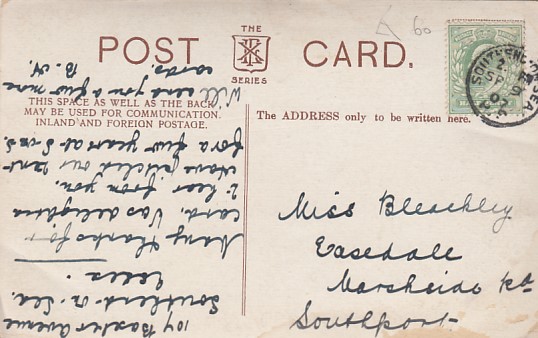 THE
POST CARD.
SERIES
THIS SPACE AS WELL AS THE BACK
MAY BE USED FOR COMMUNICATION.
INLAND AND FOREIGN POSTAGE.
The ADDRESS only to be written here.
60
SOUTHEND-ON-SEA
SP 9
Miss Bleackley
Easedale
Marshside Rd
Southport
104 Boston Avenue
Southend-on-Sea.
Essex.
Many thanks for
card. Was delighted
to hear from you.
Have pitched our tent
for a few years at S-on-S.
Will send you a few more
cards.
B. H.